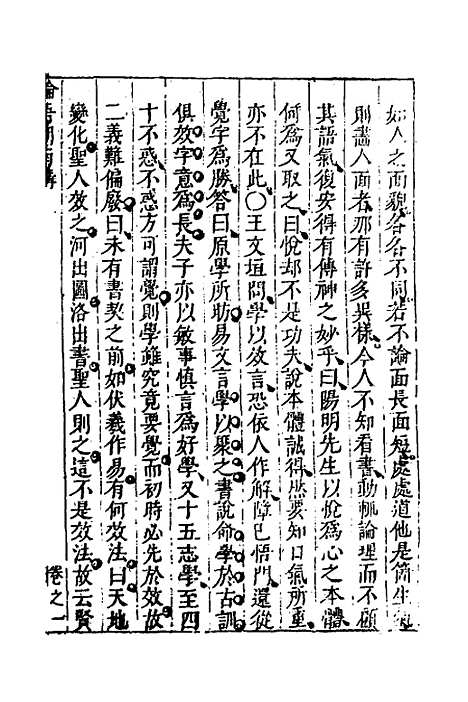 如人之面貌各各不同若不論面長面短處處道他是箇生
則畫人面者那有許多異樣今人不知看書動輒論理而不顧
其語氣復安得有傳神之妙乎曰陽明先生以悅爲心之本體
何爲又取之曰悅却不是功夫說本體誠得然要知口氣所重
亦不在此○王文垣問學以效言恐依人作解障已悟門還從
覺字爲勝答曰原學所助易文言學以聚之書說命學於古訓
俱效字意爲長夫子亦以敏事慎言爲好學又十五志學至四
十不惑不惑方可謂覺則學雖究竟要覺而初時必先於效故
二義難偏廢曰未有書契之前如伏羲作易有何效法曰天地
變化聖人效之河出圖洛出書聖人則之這不是效法故云賢
卷之二